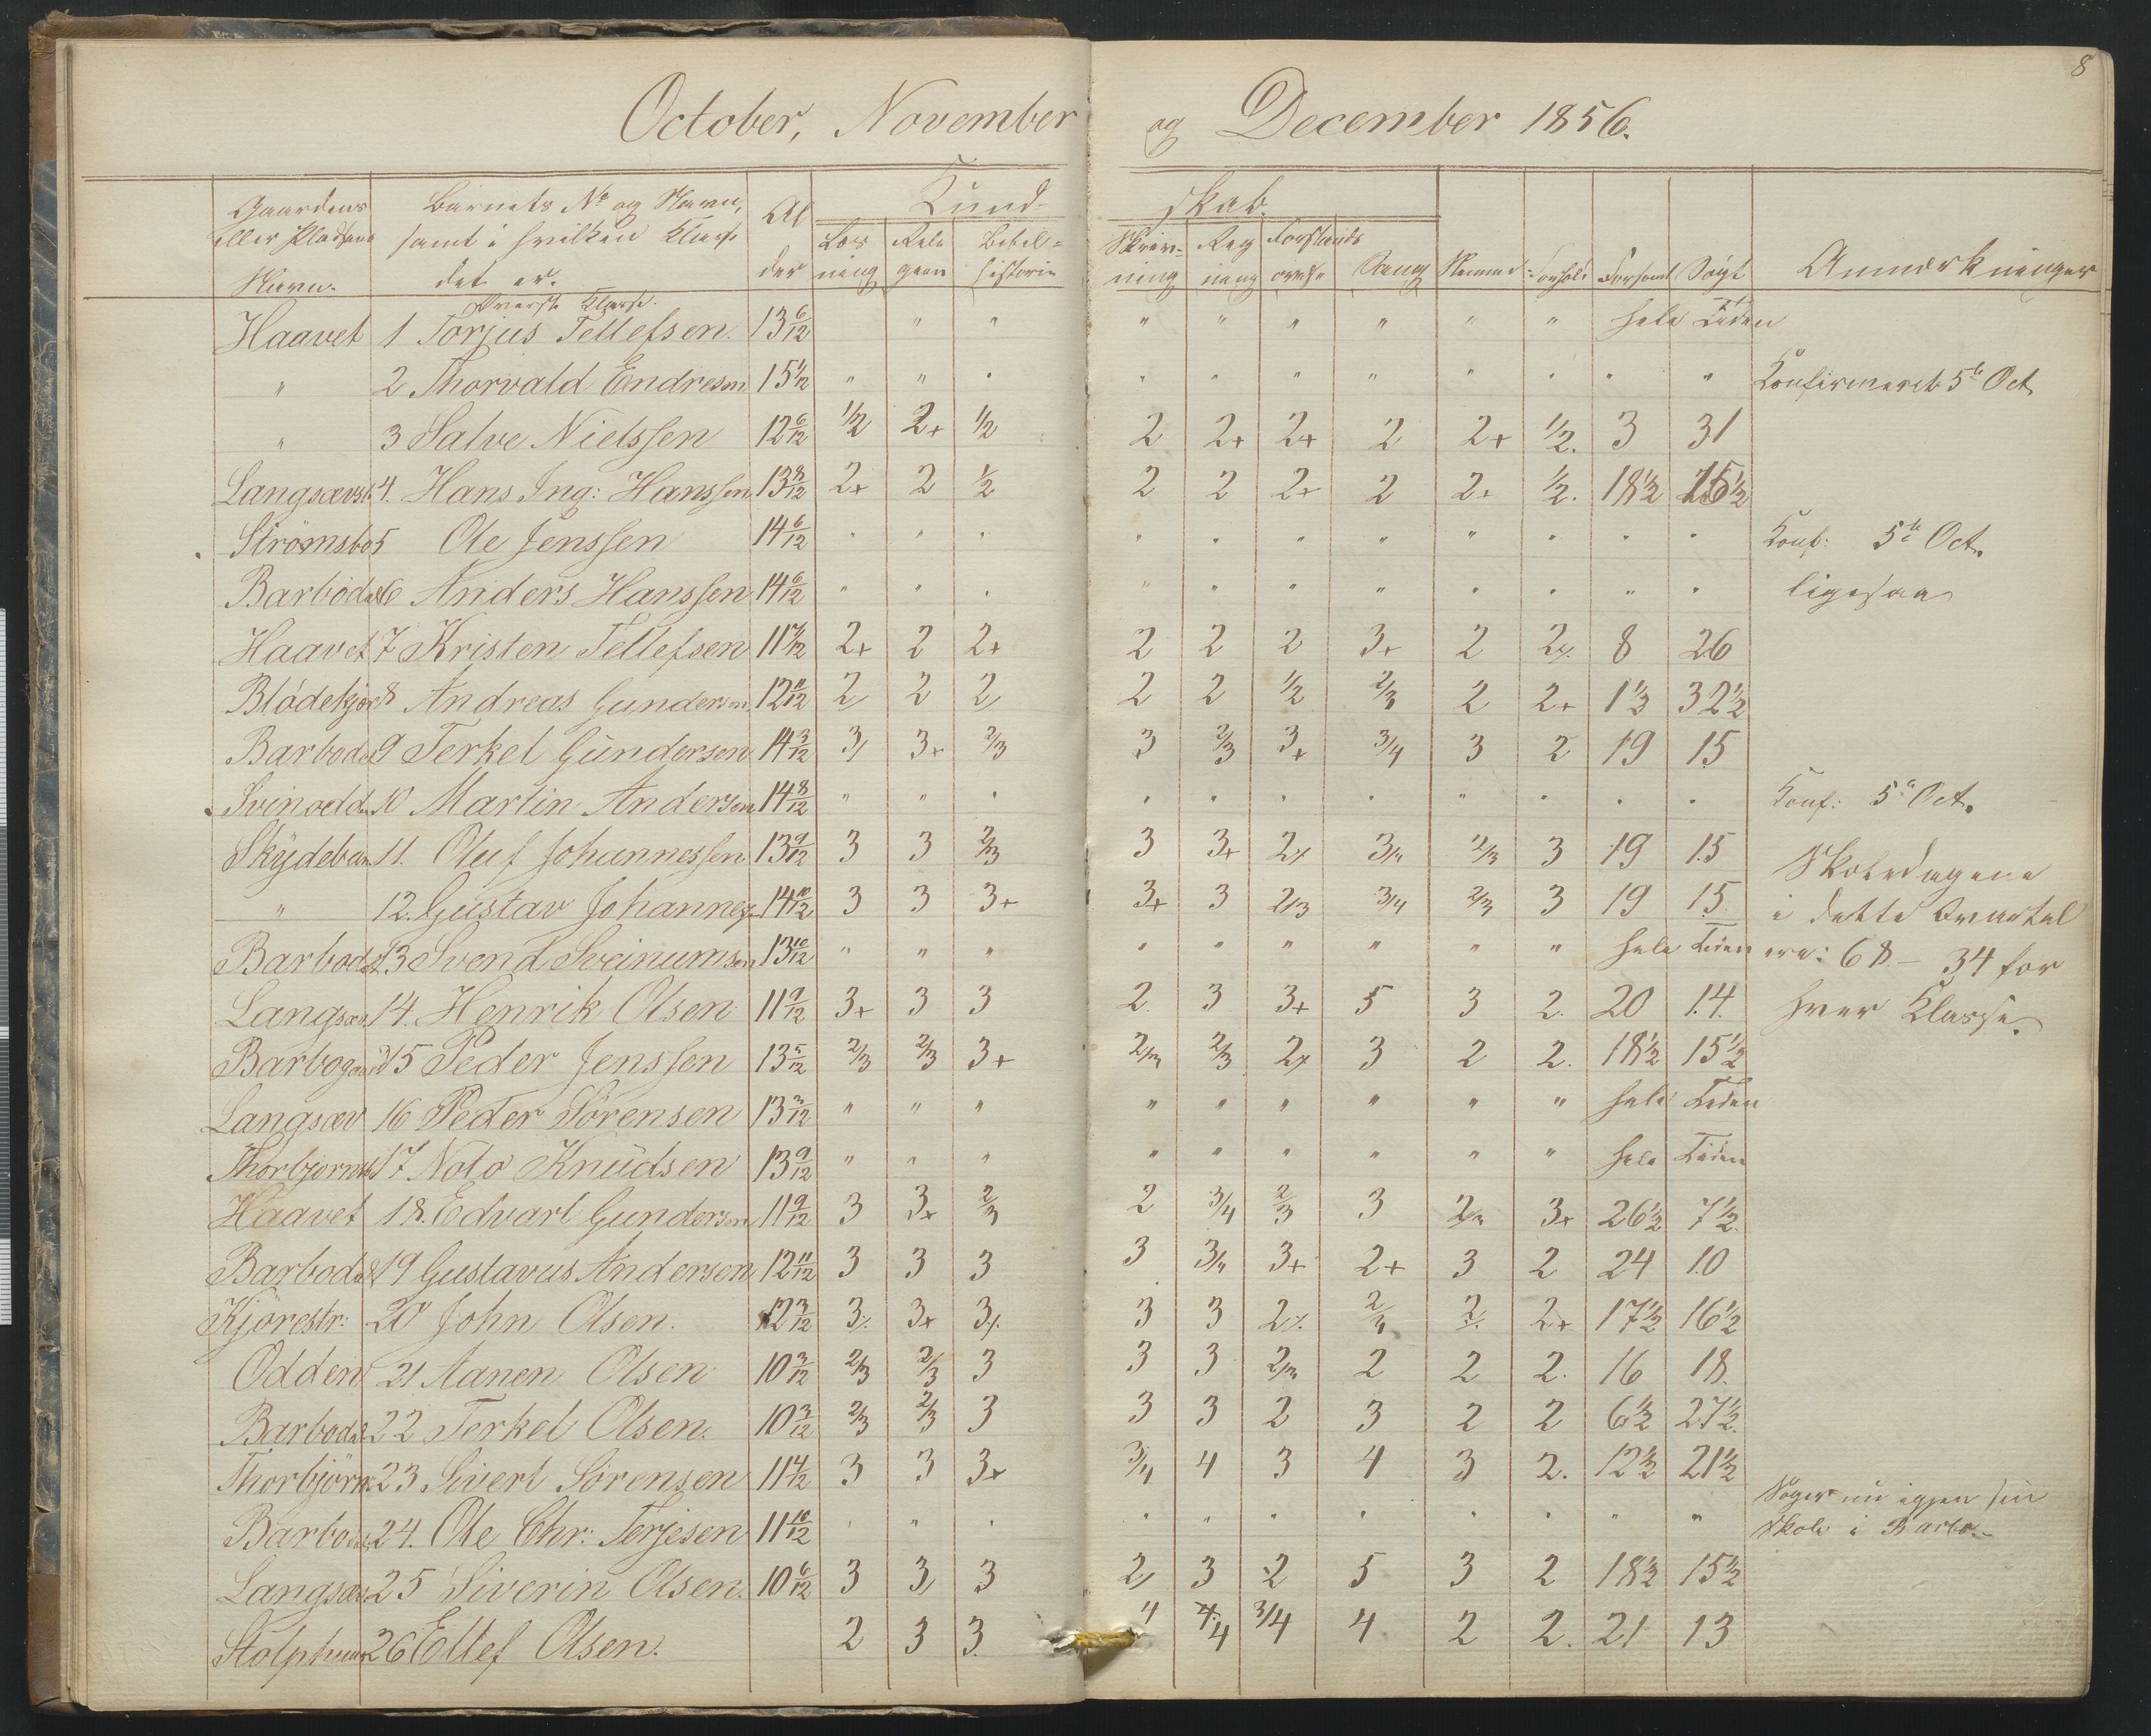 8
October, November og December 1856.
Gaardens eller Pladsens Navn. | Barnets No og Navn, samt i hvilken Klasse det er. | Alder | Kundskab. | Anmærkninger
Læsning | Religeon | Bibelhistorie | Skrivning | Regning | Forstandsøvelse | Sang | Nemme | Forhold | Forsømt | Søgt
Øverste Klasse.
Haavet 1 Torjus Tellefsen. 13 6/12 " " " " " " " " hele Tiden
" 2 Thorvald Endresen 15 1/12 " " " " " " " " " " " Konfirmeret 5te Oct.
" 3 Salve Nielssen 12 6/12 1/2 2+ 1/2 2 2+ 2+ 2 2+ 1/2. 3 31
Langsæv 4. Hans Ing: Hanssen 13 8/12 2+ 2 1/2 2 2 2+ 2 2+ 1/2. 18 1/2 15 1/2
Strömsbo 5 Ole Jenssen 14 6/12 " " " " " " " " " " " Konf: 5te Oct.
Barbodal 6 Anders Hanssen 14 6/12 " " " " " " " " " " " ligesaa
Haavet 7 Kristen Tellefsen 11 7/12 2+ 2 2+ 2 2 2 3+ 2 2%. 8 26
Blödekjær 8 Andreas Gundersen 12 11/12 2 2 2 2 2 1/2 2/3 2 2+ 1 1/3 32 1/2
Barbodal 9 Terkel Gundersen 14 3/12 3 3+ 2/3 3 2/3 3+ 3/4 3 2 19 15
Svinodden 10 Martin Andersen 14 8/12 " " " " " " " " " " " Konf: 5te Oct.
Skydeban 11. Oluf Johannessen 13 9/12 3 3 2/3 3 3+ 2% 3/4 2/3 3 19 15 Skoledagene
" 12. Gustav Johannes 14 10/12 3 3 3+ 3+ 3 2/3 3/4 2/3 3 19 15. i dette Qvartal
Barbodal 13 Svend Sveinumsen 13 10/12 " " " " " " " " " hele Tiden ere: 68 – 34 for
Langsæv 14. Henrik Olsen 11 9/12 3+ 3 3 2. 3 3+ 5 3 2. 20 14. hver Klasse.
Barbogaard 15 Peder Jenssen 13 5/12 2/3 2/3 3+ 2/3 2/3 2% 3 2 2. 18 1/2 15 1/2
Langsæv 16 Peder Sörensen 13 3/12 " " " " " " " " " hele Tiden
Thorbjørnsb 17 Noto Knudsen 13 9/12 " " " " " " " " " hele Tiden
Haavet 18. Edvart Gundersen 11 9/12 3 3+ 2/3 2 3/4 2/3 3 2/3 3+ 26 1/2 7 1/2.
Barbodal 19 Gustavus Andersen 12 11/12 3 3 3 3 3/4 3+ 2+ 3 2 24 10
Kjörestr: 20 John Olsen. 12 3/12 3% 3+ 3% 3 3 2% 2/3 2+ 17 1/2 16 1/2
Odden 21 Aanen Olsen 10 3/12 2/3 2/3 3 3 3 2/3 2 2 2. 16 18.
Barbodal 22 Terkel Olsen. 10 3/12 2/3 2/3 3 3 3 2 3 2 2 6 1/2 27 1/2.
Thorbjörns 23 Sivert Sörensen 11 4/12 3 3 3+ 3/4 4 3 4 3 2. 12 1/2 21 1/2
Barbodal 24. Ole Chr: Terjesen 11 10/12 " " " " " " " " " " " Søger nu igjen sin Skole i Barbo.
Langsæv 25 Siverin Olsen. 10 6/12 3 3 3 2 3 2 5 3 2 18 1/2 15 1/2
26 Ellef Olsen. 2 3 3. 4 4 3/4 4 2 2. 21 13